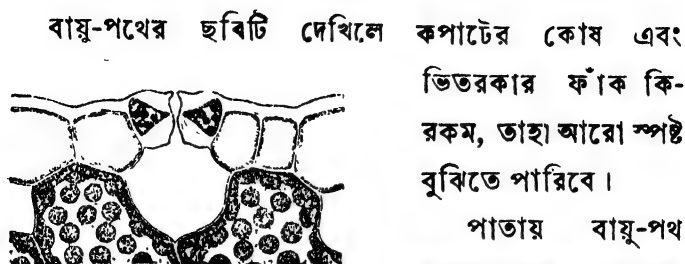 বায়ু-পথের ছবিটি দেখিলে কপাটের কোষ এবং
ভিতরকার ফাঁক কি-
রকম, তাহা আরো স্পষ্ট
বুঝিতে পারিবে।
পাতায় বায়ু-পথ